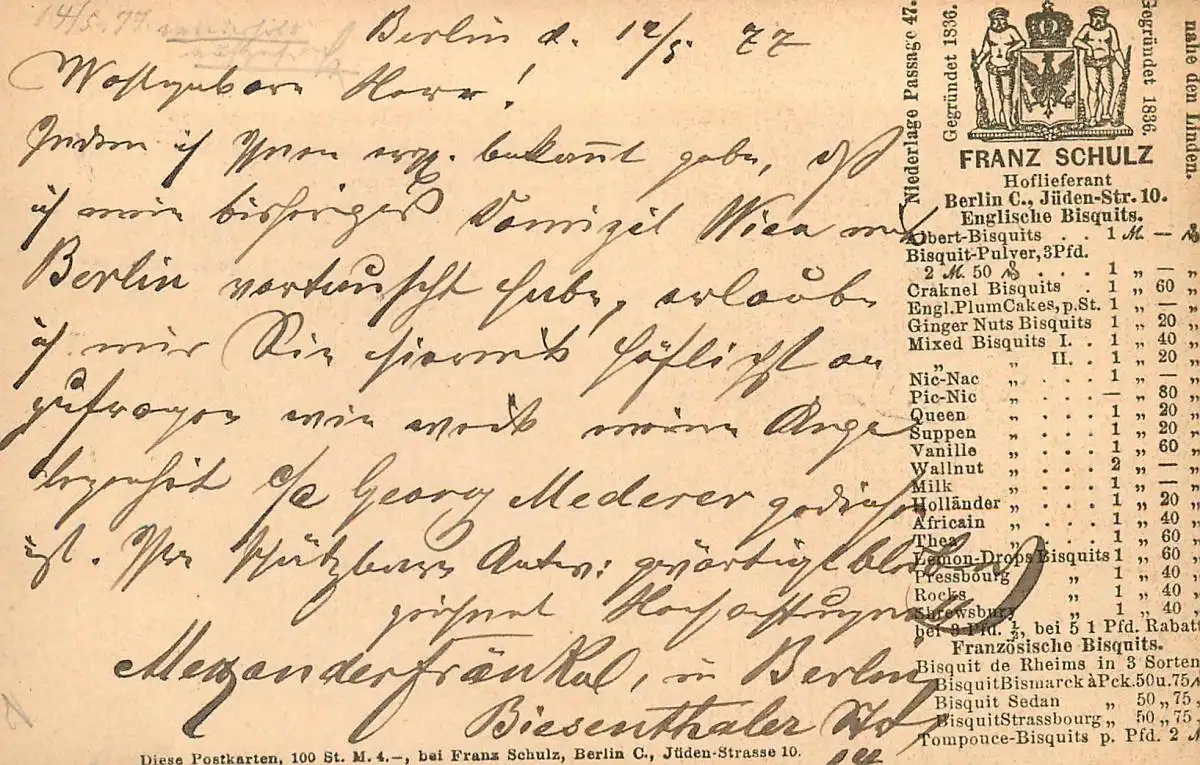 14/5.77.
Berlin d. 12/5. 77
Wohlgeborn Herr!
Indem ich Ihnen erg. bekannt gebe, daß
ich mein bisheriges Domizil Wien mit
Berlin vertauscht habe, erlaube
ich mir Sie hiermit höflichst an
zufragen wie weit meine Ange
legenheit c/a Georg Mederer gediehen
ist. Ihre schätzbare Antw: gewärtigt
zeichnet Hochachtungsvoll
Alexander Fränkel, in Berlin
Biesenthaler Str
14
Diese Postkarten, 100 St. M. 4.—, bei Franz Schulz, Berlin C., Jüden-Strasse 10.
Niederlage Passage 47.
Gegründet 1836.
Gegründet 1836.
nahe den Linden.
FRANZ SCHULZ
Hoflieferant
Berlin C., Jüden-Str. 10.
Englische Bisquits.
Albert-Bisquits . . 1 M. —
Bisquit-Pulver, 3 Pfd.
2 M. 50 ₰ . . . . 1 „ — „
Craknel Bisquits . 1 „ 60 „
Engl. Plum Cakes, p. St. 1 „ — „
Ginger Nuts Bisquits 1 „ 20 „
Mixed Bisquits I. . 1 „ 40 „
„ „ II. . 1 „ 20 „
Nic-Nac „ . . . 1 „ — „
Pic-Nic „ . . . — „ 80 „
Queen „ . . . 1 „ 20 „
Suppen „ . . . 1 „ 20 „
Vanille „ . . . 1 „ 60 „
Wallnut „ . . . 2 „ — „
Milk „ . . . 1 „ — „
Holländer „ . . . 1 „ 20 „
Africain „ . . . 1 „ 40 „
Thea „ . . . 1 „ 60 „
Lemon-Drops Bisquits 1 „ 60 „
Pressbourg „ 1 „ 40 „
Rocks „ 1 „ 40 „
Shrewsbury „ 1 „ 40
bei 3 Pfd. ½, bei 5 1 Pfd. Rabatt
Französische Bisquits.
Bisquit de Rheims in 3 Sorten
Bisquit Bismarck à Pck. 50 u. 75
Bisquit Sedan „ 50 „ 75
Bisquit Strassbourg „ 50 „ 75
Tompouce-Bisquits p. Pfd. 2 M